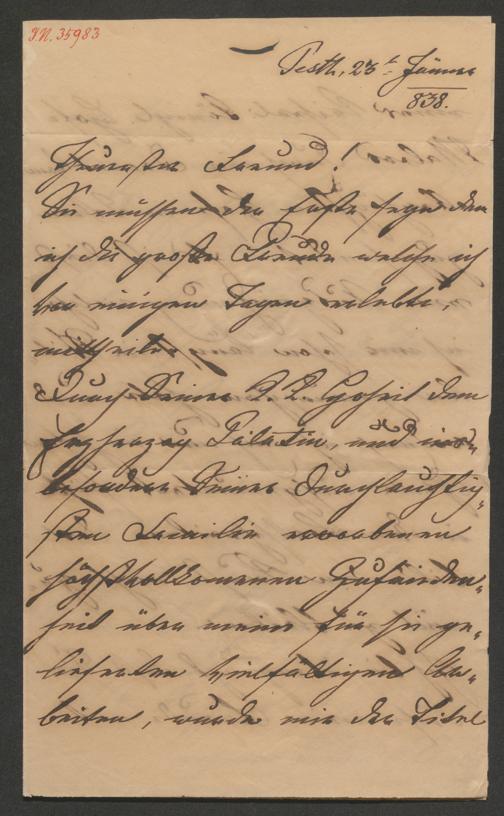 I.N. 35983
Pesth, 23t Jänner
838.
Theuerster Freund!
Sie müssen der Erste seyn dem
ich die große Freude welche ich
vor einigen Tagen erlebte,
mittheile.
Durch Seiner K. K. Hoheit dem
Erzherzog Palatin, und ins-
besondere Seiner Durchlauchtig-
sten Familie erworbenen
höchstvollkomenen Zufrieden-
heit über meine für sie ge-
lieferten vielfältigen Ar-
beiten, wurde mir der Titel